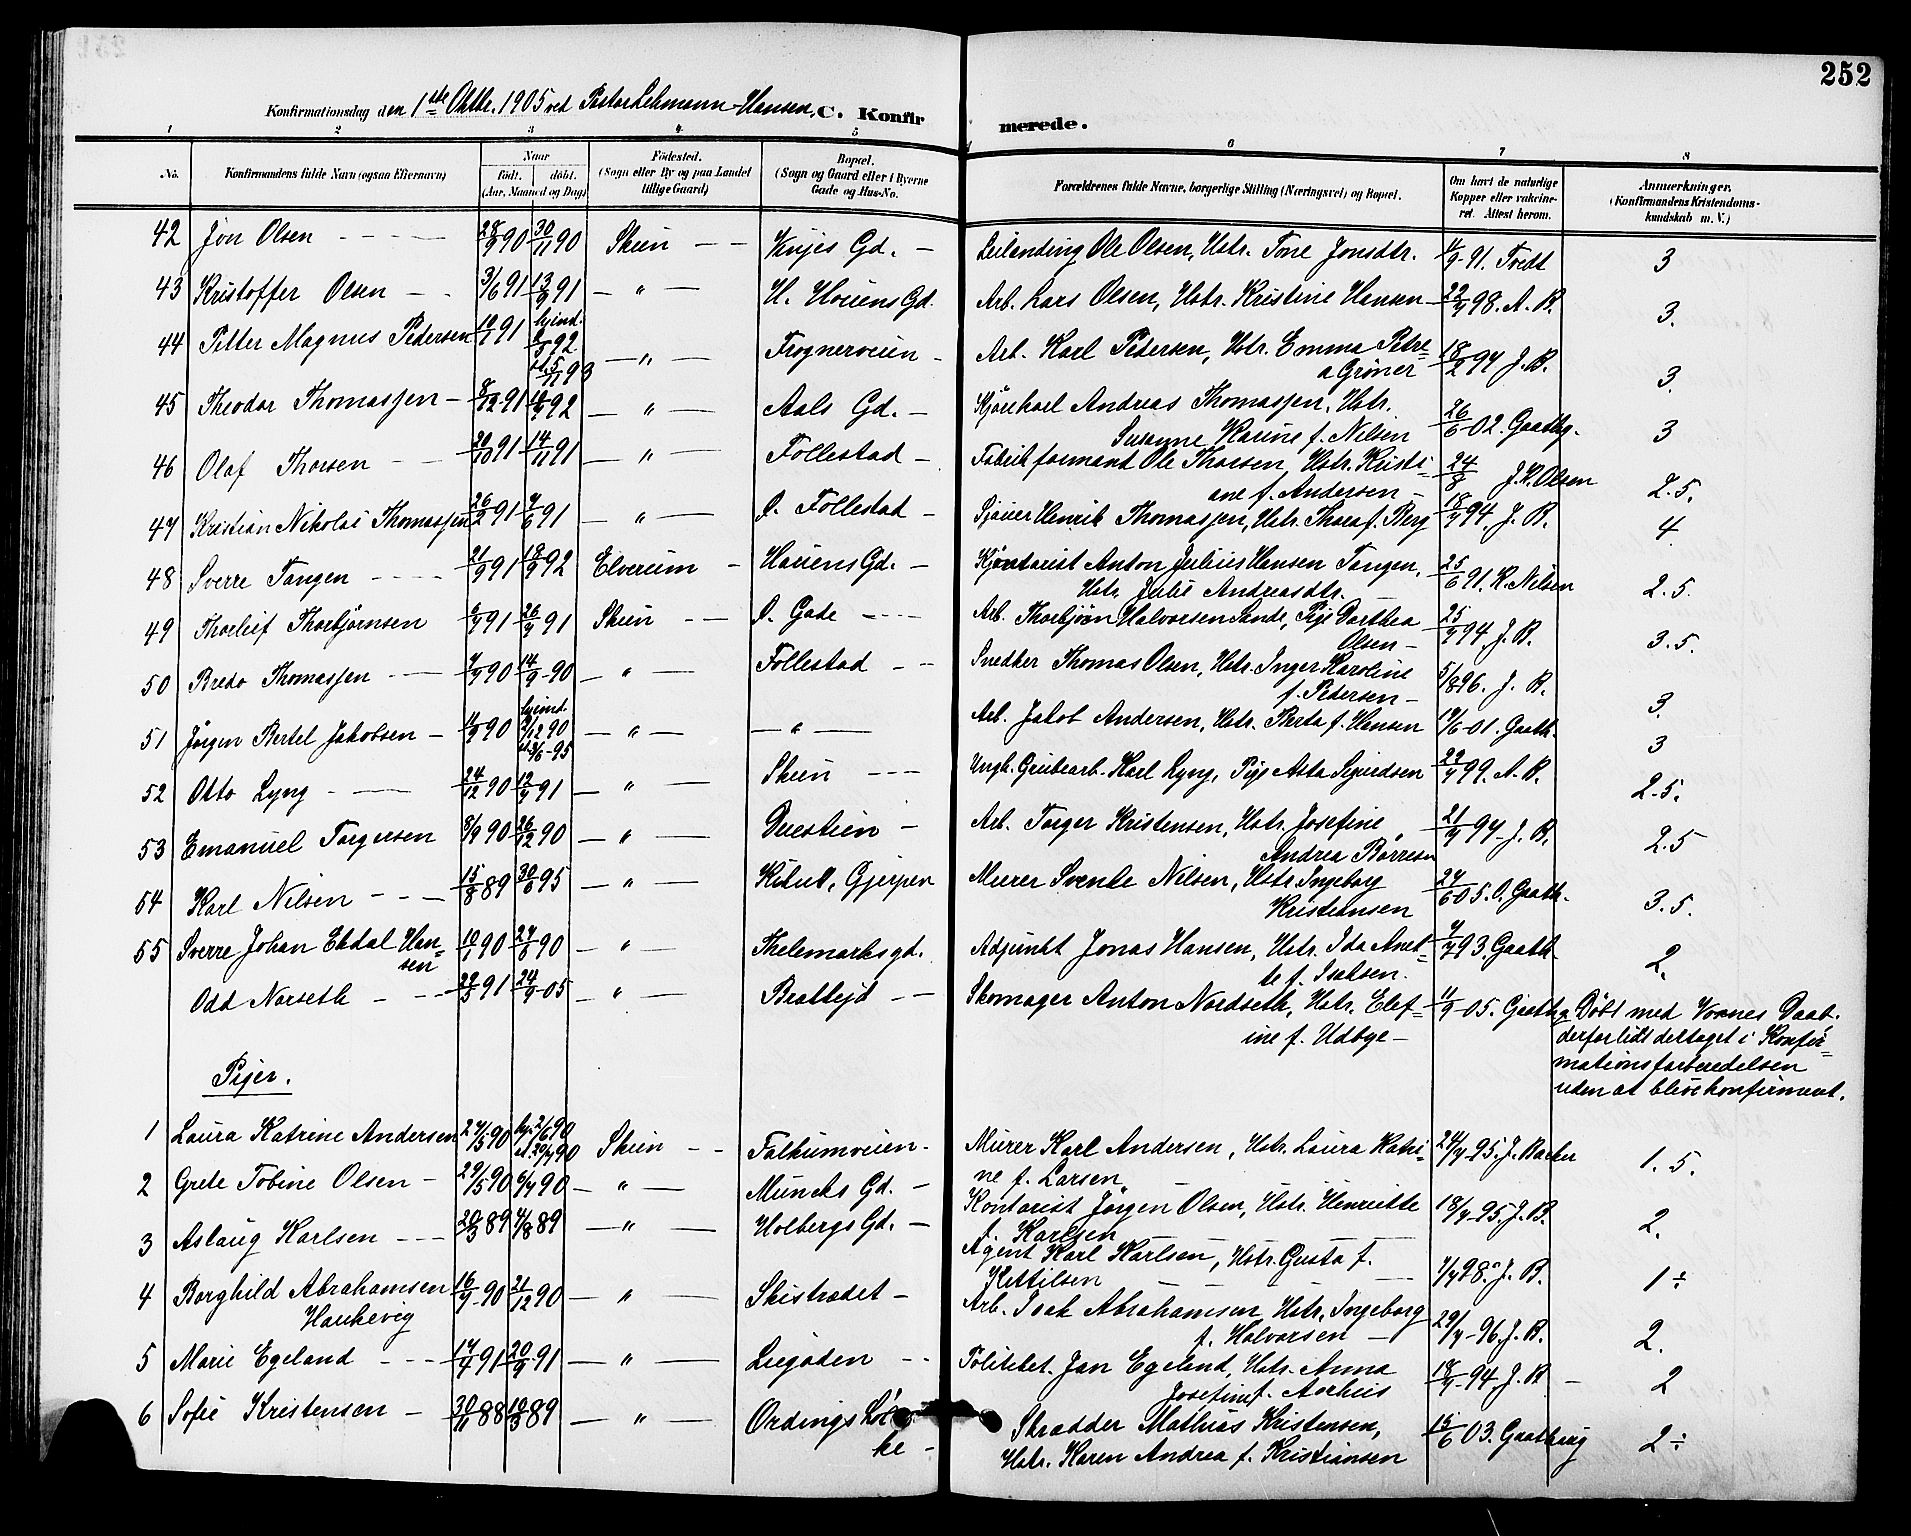 252
Konfirmationsdag den 1ste Oktbr. 1905 ved Pastor Lehmann-Hansen, C. Konfirmerede.
1 2 3 4 5 6 7 8
No. Konfirmandens fulde Navn (ogsaa Efternavn) Naar født. døbt. (Aar, Maaned og Dag) Fødested. (Sogn eller By og paa Landet tillige Gaard) Bopæl. (Sogn og Gaard eller i Byerne Gade og Hus-No. Forældrenes fulde Navne, borgerlige Stilling (Næringsvei) og Bopæl. Om havt de naturlige Kopper eller vakcineret. Attest herom. Anmerkninger. (Konfirmandens Kristendomskundskab m. V.)
42 Jon Olsen 28/9 90 30/11 90 Skien Gd. Leilending Ole Olsen, Hstr. Tone Jonsdtr. 11/9-91. Tvedt 3
43 Kristoffer Olsen 3/6 91 13/9 91 " H. Houens Gd. Arb. Lars Olsen, Hstr. Kristine Hansen 22/4 98. A. B. 3.
44 Petter Magnus Pedersen 10/1 91 hjemd. 92 st. 5/11 93 " Frognerveien Arb. Karl Pedersen, Hstr. Emma Petrea Grøner 18/2 94 J. B. 3.
45 Theodor Thomassen 8/12 91 10/4 92 " Aals Gd. Andreas Thomassen, Hstr. Susanne Karine f. Nilsen 26/6 02. Gaathg. 3
46 Olaf Thorsen 20/10 91 14/11 91 " Follestad Fabrikformand Ole Thorsen, Hstr. Kristiane f. Andersen 24/8 J. V. Olsen 2.5.
47 Kristian Nikolai Thomassen 26/2 91 7/6 91 " O. Follestad Sjauer Henrik Thomassen, Hstr. Thora f. Berg 18/4 94. J. B. 4.
48 Sverre Tangen 21/9 91 18/9 92 Elverum Houens Gd. Anton Julius Hansen Tangen, Hstr. Julie Andreasdtr. 25/6 91. K. Nilsen 2.5.
49 Thorleif Thorbjørnsen 91 26/7 91 Skien O. Gade Arb. Thorbjørn Halvorsen Sande, Pige Dorthea Olsen 25/4 94 J. B. 3.5.
50 Bredo Thomassen 7/7 90 14/9-90 " Follestad Snedker Thomas Olsen, Hstr. Inger Karoline f. Pedersen 5/8 96. J. B. 3.
51 Jørgen Bertel Jakobsen 11/9 90 hjemd. 2/12 90 st. 3/6-95 " " Arb. Jakob Andersen, Hstr. Berta f. Hansen 19/6-01. Gaath. 3
52 Otto Lyng 24/12 90 12/4 91 " Skien Ungk. Grubearb. Karl Lyng, Pige Asta Sigurdsen 22/4 99. A. B. 2.5.
53 Emanuel Torgersen 3/9 90 26/12 90 " Duestien Arb. Torger Kristensen, Hstr. Josefine Andrea Børresen 21/4 94 J. B. 2.5
54 Karl Nilsen 15/8 89 30/6 95 " Gjerpen Murer Svenke Nilsen, Hstr. Ingeborg Kristiansen 24/6 05. O. Gaath. 3.5.
55 Sverre Johan Ekdal Hansen 10/1 90 27/8 90 " Thelemarksgd. Adjunkt Jonas Hansen, Hstr. Ida Anette f. Isaksen. 7/7 93. Gaath. 2.
Odd Norseth 22/3 91 24/9-05 " Brattejd Skomager Anton Nordseth, Hstr. Elefine f. Udbye 11/9-05. Gaathg. Døbt med Voxnes Daab.
derfor lidt deltaget i Konfir=
mationsforberedelsen
uden at blive konfirmert.
Piger.
1 Laura Katrine Andersen 27/5 90 hj. 2/6 90 st. 20/7 90 Skien Falkumveien Murer Karl Andersen, Hstr. Laura Katrine f. Larsen 24/4-95. J. Backer 1.5.
2 Grete Tobine Olsen 29/5 90 6/7 90 " Muncks Gd. Kontorist Jørgen Olsen, Hstr. Henriette f. Karlsen 18/4-95. J. B. 2.
3 Aslaug Karlsen 20/3 89 4/8 89 " Holbergs Gd. Agent Karl Karlsen, Hstr. Gusta f. Kettilsen 7/4 98. J. B. 1÷
4 Borghild Abrahamsen Haukevig 16/9-90 21/12 90 " Skistredet Arb. Isak Abrahamsen, Hstr. Ingeborg f. Halvorsen 29/4-96. J. B. 2.
5 Marie Egeland 17/4 91 20/9 91 " Liegaden Politibet. Jan Egeland, Hstr. Anna Josefine f. Aarhus 18/4-94. J. B 2
6 Sofie Kristensen 30/11 88 10/3 89 " Ordings Løkke Skrædder Mathias Kristensen, Hstr. Karen Andrea f. Kristiansen 15/6 03. Gaathaug 2÷